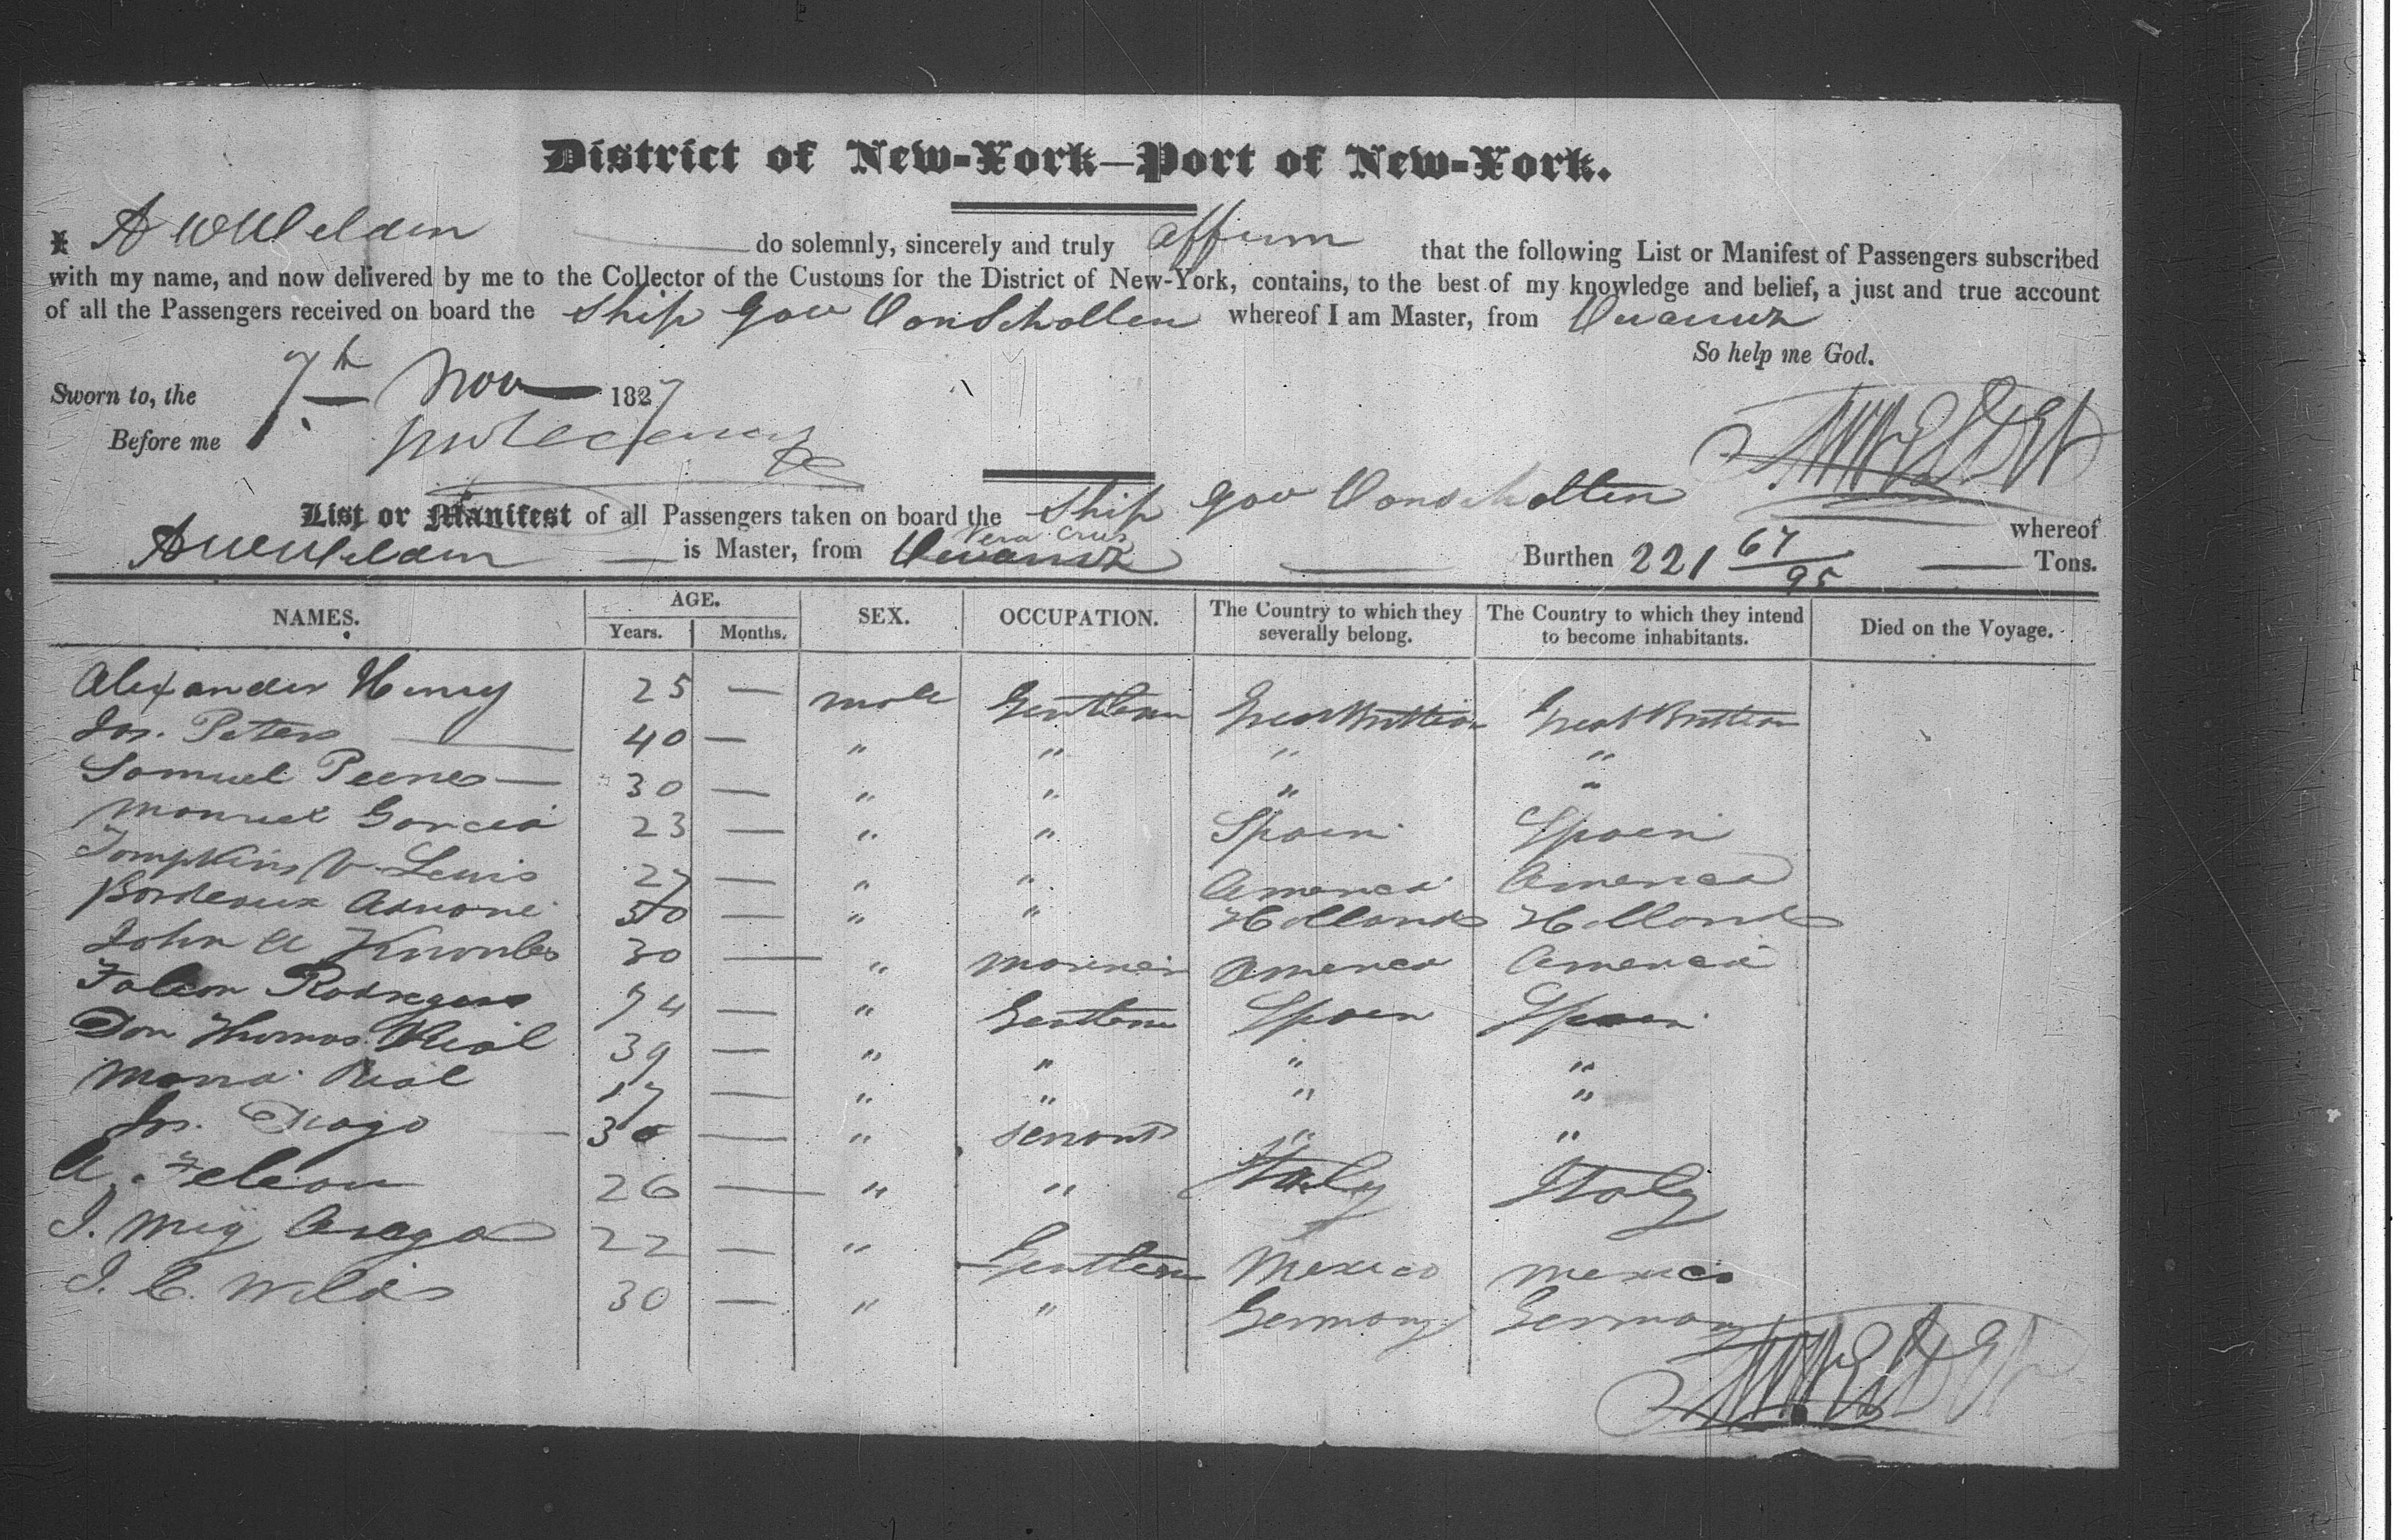 District of New-York—Port of New-York.
I A W Welden do solemnly, sincerely and truly affirm that the following List or Manifest of Passengers subscribed
with my name, and now delivered by me to the Collector of the Customs for the District of New-York, contains, to the best of my knowledge and belief, a just and true account
of all the Passengers received on board the Ship Gov Von Scholten whereof I am Master, from
So help me God.
Sworn to, the 7th Nov 1827
Before me
List or Manifest of all Passengers taken on board the Ship Gov Von Scholten whereof
A W Welden is Master, from Vera Crus Burthen 221 67/95 Tons.
NAMES. AGE. Years. Months. SEX. OCCUPATION. The Country to which they severally belong. The Country to which they intend to become inhabitants. Died on the Voyage.
Alexander Henry 25 — male Gentlemn Great Brittian Great Brittian
Jos. Peters — 40 — " " " "
Samuel — 30 — " " " "
Manuel Garcia 23 — " " Spain Spain
Tompkins V Lewis 27 — " " America America
Bordeaux 50 — " " Holland Holland
John A Knowles 30 — " Mariner America America
Falcon 74 — " Gentlemn Spain Spain
Don Thomas Rial 39 — " " " "
Maria Rial 17 — " " " "
Jos. Diago — 30 — " Servant " "
A. Felcon 26 — " " Italy Italy
J. Mig 22 — " Gentlemn Mexico Mexico
J. C. Wilds 30 — " " Germany Germany